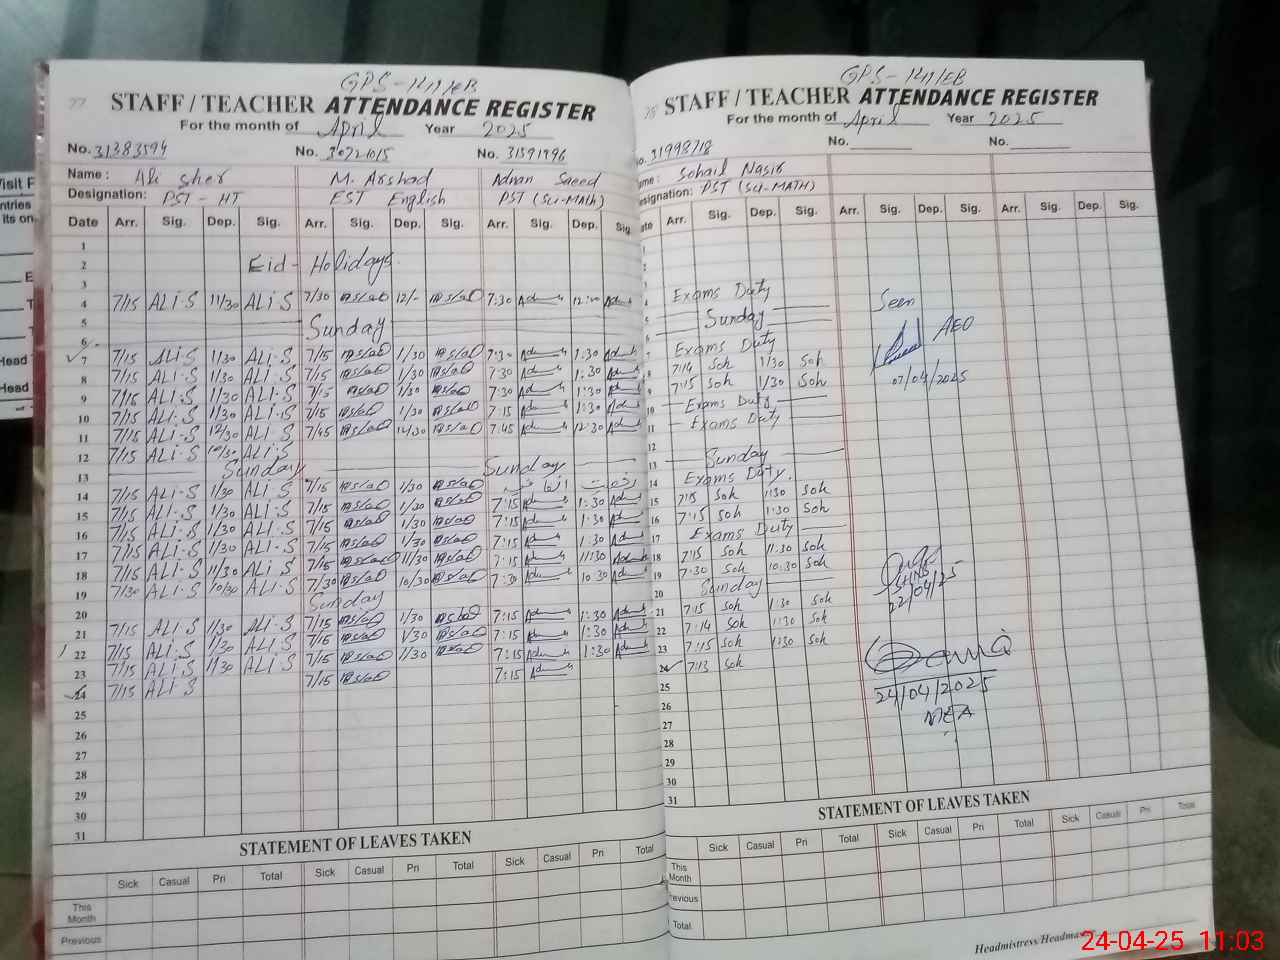 GPS-
77 STAFF / TEACHER ATTENDANCE REGISTER
For the month of April Year 2025
No. 31383594 No. No. 31391996
Name : Ali Sher M. Arshad Adnan Saeed
Designation: PST - HT EST English PST (Sci-MATH)
Date Arr. Sig. Dep. Sig. Arr. Sig. Dep. Sig. Arr. Sig. Dep. Sig.
1
2 Eid- Holidays.
3
4 7/15 ALI-S 11/30 ALI-S 7/30 12/- 7:30
5 Sunday
6
7 7/15 ALI-S 1/30 ALI-S 7/15 1/30 1:30
8 7/15 ALI-S 1/30 ALI-S 7/15 1/30 7:30 1:30
9 7/15 ALI-S 1/30 ALI-S 7/15 1/30 7:30 1:30
10 7/15 ALI-S 1/30 ALI-S 7/15 1/30 7:15 1:30
11 7/15 ALI-S 12/30 ALI-S 7/45 7:45 12:30
12 7/15 ALI-S ALI-S
13 Sunday Sunday
14 7/15 ALI-S 1/30 ALI-S 7/15 1/30
15 7/15 ALI-S 1/30 ALI-S 7/15 1/30 7:15 1:30
16 7/15 ALI-S 1/30 ALI-S 7/15 1/30 7:15 1:30
17 7/15 ALI-S 1/30 ALI-S 7/15 1/30 7:15 1:30
18 7/15 ALI-S 11/30 ALI-S 7/15 11/30 7:15 11:30
19 7/30 ALI-S 10/30 ALI-S 7/30 10/30 7:30 10:30
20 Sunday
21 7/15 ALI-S 1/30 ALI-S 7/15 1/30 7:15 1:30
22 7/15 ALI-S 1/30 ALI-S 7/15 1/30 7:15 1:30
23 7/15 ALI-S 1/30 ALI-S 7/15 1/30 7:15 1:30
24 7/15 ALI-S 7/15 7:15
25
26
27
28
29
30
31
STATEMENT OF LEAVES TAKEN
Sick Casual Pri Total Sick Casual Pri Total Sick Casual Pri Total
This Month
Previous
GPS-
STAFF / TEACHER ATTENDANCE REGISTER
For the month of April Year 2025
No. 31998718 No. No.
Name: Sohail Nasir
Designation: PST (Sci-MATH)
Date Arr. Sig. Dep. Sig. Arr. Sig. Dep. Sig. Arr. Sig. Dep. Sig.
1
2
3
4 Exams Duty Seen
5 Sunday
6 AEO
7 Exams Duty
8 7:14 Soh 1/30 Soh 07/04/2025
9 7:15 Soh 1/30 Soh
10 Exams Duty
11 Exams Duty
12
13 Sunday
14 Exams Duty.
15 7:15 Soh 1:30 Soh
16 7:15 Soh 1:30 Soh
17 Exams Duty
18 7:15 Soh 11:30 Soh
19 7:30 Soh 10:30 Soh
20 Sunday 22/04/25
21 7:15 Soh 1:30 Soh
22 7:14 Soh 1:30 Soh
23 7:15 Soh 1:30 Soh
24 7:13 Soh
25 24/04/2025
26 MEA
27
28
29
30
31
STATEMENT OF LEAVES TAKEN
Sick Casual Pri Total Sick Casual Pri Total Sick Casual Pri Total
This Month
Previous
Total
Headmistress/Headmaster
24-04-25 11:03